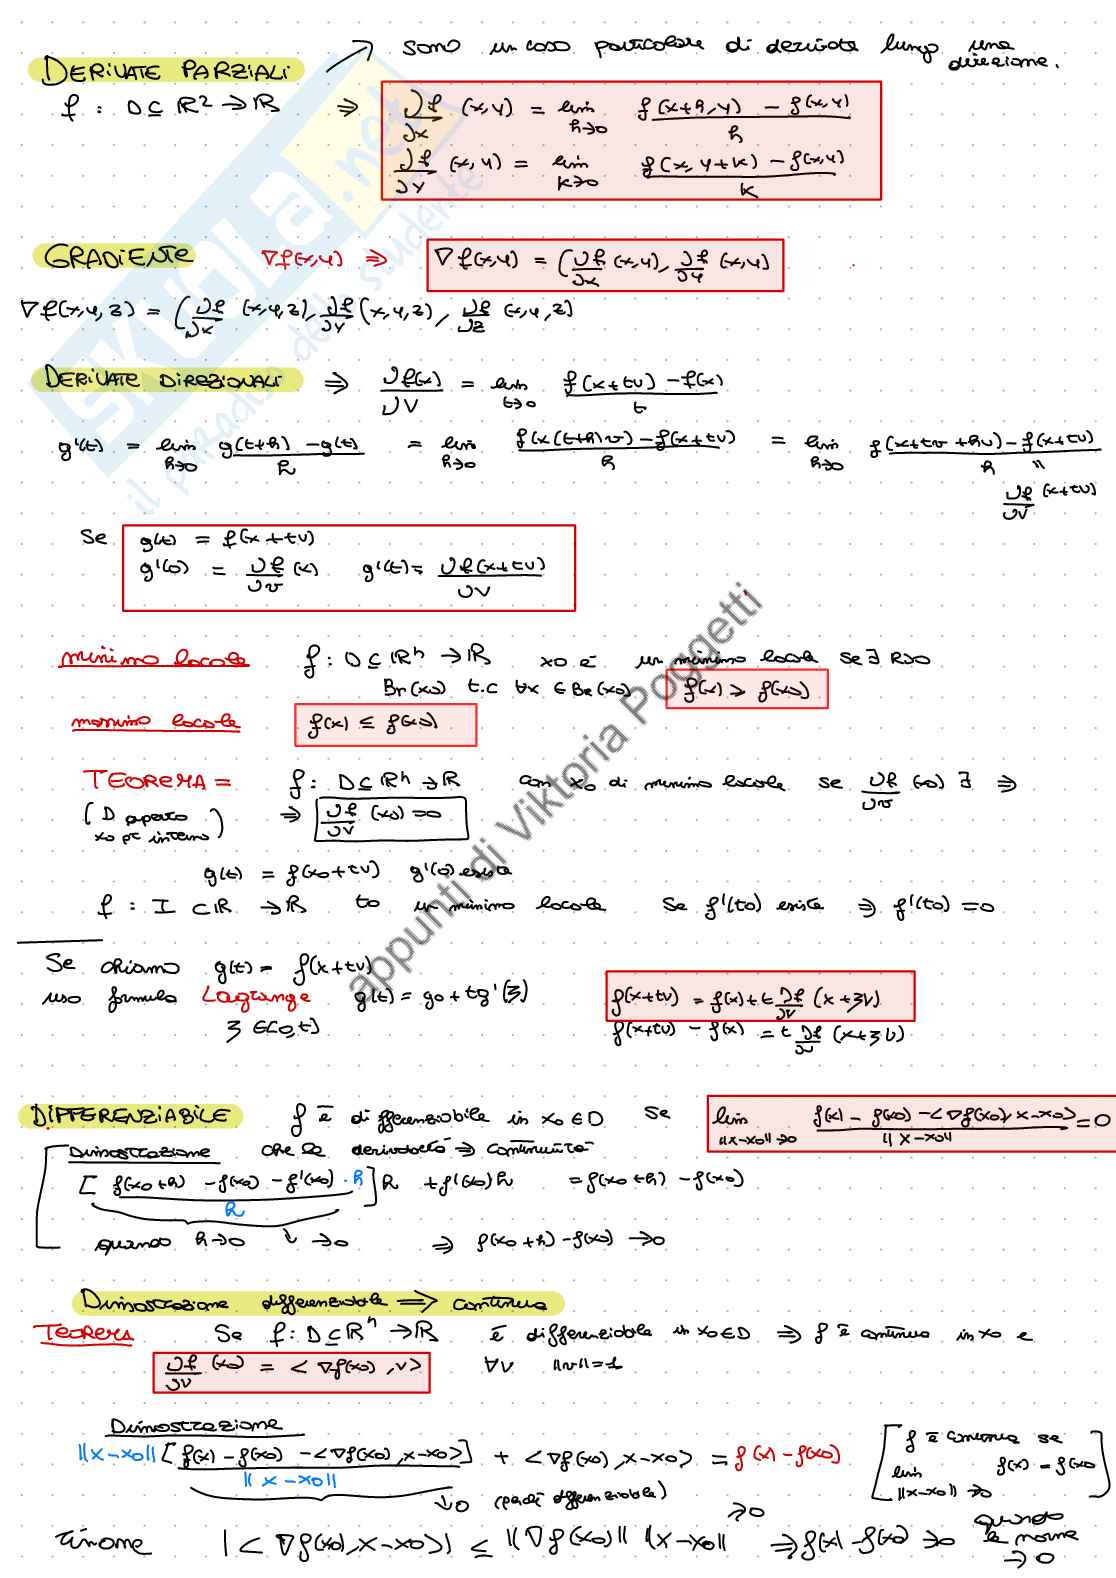 DERIVATE PARZIALI → sono un caso particolare di derivata lungo una direzione.
f : D ⊆ ℝ² → ℝ ⇒ ∂f/∂x (x,y) = lim h→0 (f(x+h,y) - f(x,y))/h
∂f/∂y (x,y) = lim k→0 (f(x,y+k) - f(x,y))/k
GRADIENTE ∇f(x,y) ⇒ ∇f(x,y) = (∂f/∂x (x,y), ∂f/∂y (x,y)
∇f(x,y,z) = (∂f/∂x (x,y,z), ∂f/∂y (x,y,z), ∂f/∂z (x,y,z)
DERIVATE DIREZIONALI ⇒ ∂f(x)/∂v = lim t→0 (f(x+tv) - f(x))/t
g'(t) = lim h→0 (g(t+h) - g(t))/h = lim h→0 (f(x(t+h)v) - f(x+tv))/h = lim h→0 (f(x+tv+hv) - f(x+tv))/h
"
∂f/∂v (x+tv)
Se g(t) = f(x+tv)
g'(0) = ∂f/∂v (x) g'(t) = ∂f(x+tv)/∂v
minimo locale f : D ⊆ ℝⁿ → ℝ x0 è un minimo locale se ∃ R>0
Br(x0) t.c ∀x ∈ Br(x0) f(x) ≥ f(x0)
massimo locale f(x) ≤ f(x0)
TEOREMA = f : D ⊆ ℝⁿ → ℝ con x0 di minimo locale se ∂f/∂v (x0) ∃ ⇒
(D aperto x0 pt interno) ⇒ ∂f/∂v (x0) = 0
g(t) = f(x0+tv) g'(0) esista
f : I ⊂ ℝ → ℝ t0 un minimo locale se f'(t0) esiste ⇒ f'(t0) = 0
Se chiamo g(t) = f(x+tv)
uso formula Lagrange g(t) = g0 + tg'(ξ) f(x+tv) = f(x) + t ∂f/∂v (x+ξv)
ξ ∈ (0,t) f(x+tv) - f(x) = t ∂f/∂v (x+ξv)
DIFFERENZIABILE f è differenziabile in x0 ∈ D se lim ||x-x0||→0 (f(x) - f(x0) - <∇f(x0), x-x0>)/||x-x0|| = 0
Dimostrazione che la derivabilità ⇒ continuità
[(f(x0+h) - f(x0) - f'(x0)·h)/h] h + f'(x0)h = f(x0+h) - f(x0)
quando h→0 ↓ →0 ⇒ f(x0+h) - f(x0) → 0
Dimostrazione differenziabile ⇒ continua
TEOREMA Se f : D ⊆ ℝⁿ → ℝ è differenziabile in x0 ∈ D ⇒ f è continua in x0 e
∂f/∂v (x0) = <∇f(x0), v> ∀v ||v|| = 1
Dimostrazione
||x-x0|| [(f(x) - f(x0) - <∇f(x0), x-x0>)/||x-x0||] + <∇f(x0), x-x0> = f(x) - f(x0) [f è continua se lim ||x-x0||→0 f(x) = f(x0]
↓0 (perchè differenziabile)
Rimane |<∇f(x0), x-x0>| ≤ ||∇f(x0)|| ||x-x0|| →0 ⇒ f(x) - f(x0) → 0 quando la norma → 0
SKUOLA.net
il paradiso dello studente
appunti di Viktoria Poggetti